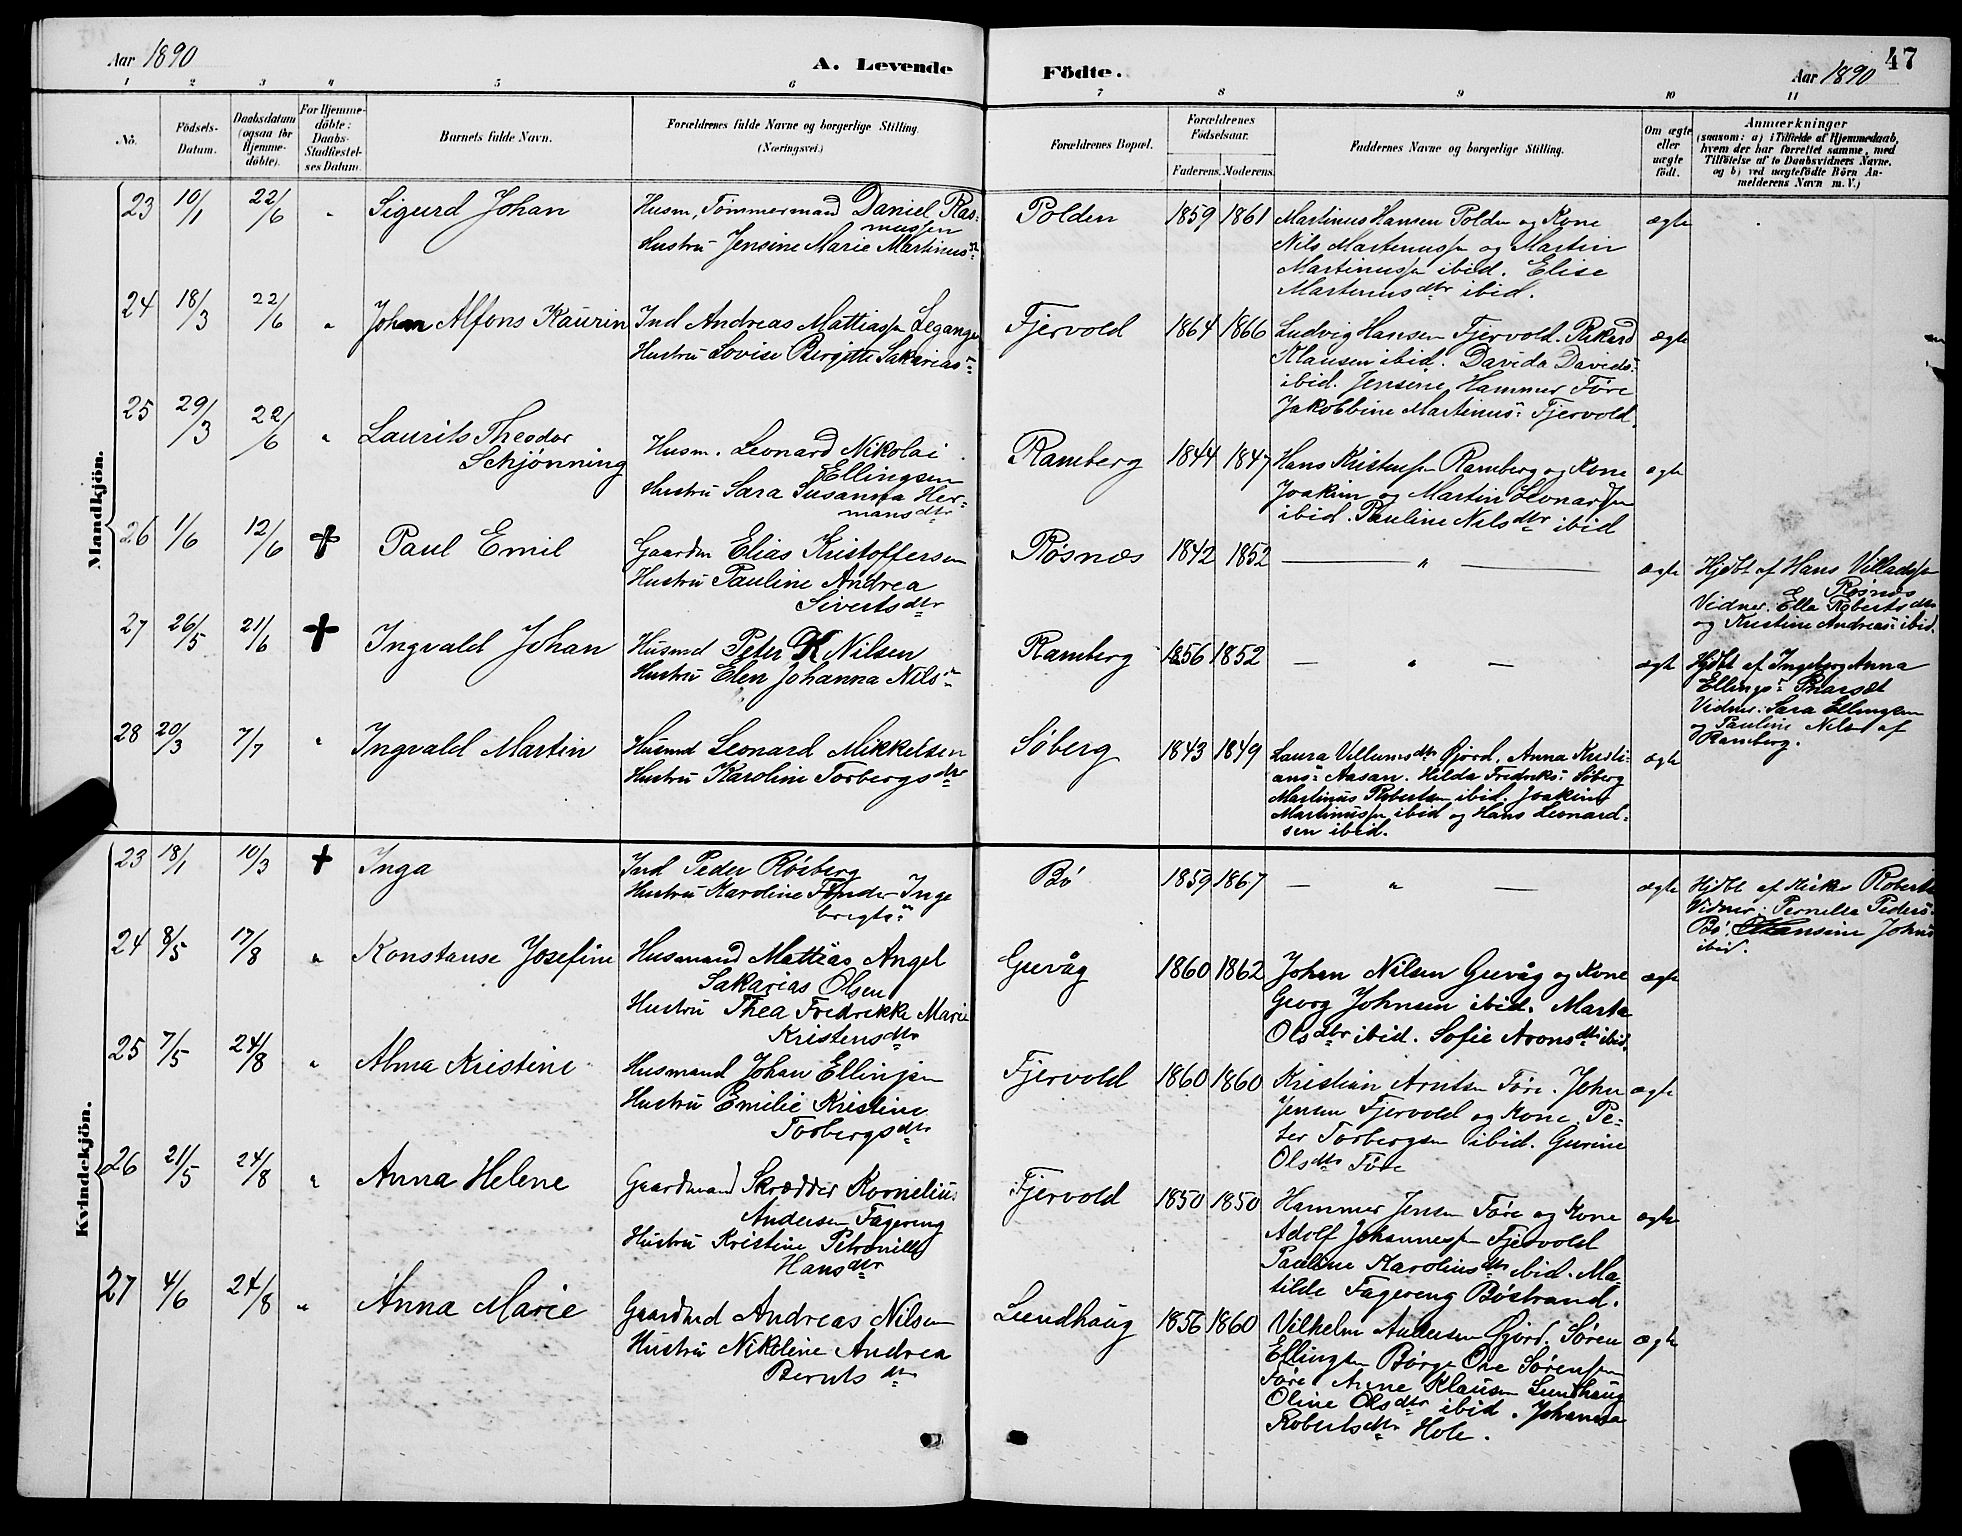 Aar 1890
A. Levende Födte.
47
Aar 1890
1 2 3 4 5 6 7 8 9 10 11
No.
Födsels-Datum.
Daabsdatum (ogsaa for Hjemme-döbte).
For Hjemme-döbte: Daabs-Stadfæstel-ses Datum.
Barnets fulde Navn.
Forældrenes fulde Navne og borgerlige Stilling. (Næringsvei.)
Forældrenes Bopæl.
Forældrenes Födselsaar.
Faderens. Moderens.
Faddernes Navne og borgerlige Stilling.
Om ægte eller uægte födt.
Anmærkninger
(saasom: a) i Tilfælde af Hjemmedaab,
hvem der har forrettet samme, med
Tilföielse af to Daabsvidners Navne.
og b) ved uægtefödte Börn An-
melderens Navn m. V.)
Mandkjön.
23 10/1 22/6 " Sigurd Johan
Husm, Tømmermand Daniel Ras-
mussen
Hustru Jensine Marie Martinus
Polden 1859 1861
Martinus Hansen Polden og Kone
Nils Martinussen og Martin
Martinussen ibid. Elise
Martinusdtr ibid.
ægte
24 18/3 22/6 " Johan Alfons Kaurin
Ind Andreas Mattiassen Leganger
Hustru Lovise Birgitte Sakarias
Fjervold 1864 1866
Ludvig Hansen Fjervold. Rikard
Klausen ibid. Davida Davids
ibid. Jensine Hammer Føre
Jakobbine Martinus Fjervold.
ægte
25 29/3 22/6 " Laurits Theodor
Schjønning
Husm. Leonard Nikolai
Ellingsen
Hustru Sara Susanna Her-
mansdtr
Ramberg 1844 1847
Hans Kristensen Ramberg og Kone
Joakim og Martin Leonardsen
ibid. Pauline Nilsdtr ibid
ægte
26 1/6 12/6 ✝ Paul Emil
Gaardm Elias Kristoffersen
Hustru Pauline Andrea
Sivertsdtr
Røsnæs 1842 1852
— " —
ægte
Hjdbt af Hans Villadsen
Røsnæs
Vidner. Ella Robertsdtr
og Kristine Andreas ibid.
27 26/5 21/6 ✝ Ingvald Johan
Husmd Peter K Nilsen
Hustru Elen Johanna Nils
Ramberg 1856 1852
— " —
ægte
Hjdbt af Ingeborg Anna
Ellings
Vidner: Sara Ellingsen
og Pauline Nilsd af
Ramberg.
28 20/3 7/7 " Ingvald Martin
Husmd Leonard Mikkelsen
Hustru Karoline Torbergsdtr
Søberg 1843 1849
Laura Villumsdtr Gjord. Anna Kristi-
ans Aasan. Hilda Fredriks Søberg
Martinus Robertsen ibid. Joakim
Martinussen ibid og Hans Leonard-
sen ibid.
ægte
Kvindekjön.
23 18/1 10/3 ✝ Inga
Ind Peder Røsberg
Hustru Karoline Inge
brigts
Bø 1859 1867
— " —
ægte
Hjdbt af Roberts
Vidner: Pernille Peders
Bø. Hansine Johns
ibid.
24 8/5 17/8 " Konstanse Josefine
Husmand Mattias Angel
Sakarias Olsen
Hustru Thea Fredrikke Marie
Kristensdtr
Guvåg 1860 1862
Johan Nilsen Guvåg og Kone
Georg Johnsen ibid. Marta
Olsdtr ibid. Sofie Aronsdtr ibid.
ægte
25 7/5 24/8 " Alma Kristine
Husmand Johan Ellingsen
Hustru Emilie Kristine
Torbergsdtr
Fjervold 1860 1860
Kristian Arntsen Føre. John
Jensen Fjervold og Kone Pe-
ter Torbergsen ibid. Gurine
Olsdtr Føre
ægte
26 21/5 24/8 " Anna Helene
Gaardmand Skrædder Kornelius
Andersen Fagereng
Hustru Kristine Petronille
Hansdtr
Fjervold 1850 1850
Hammer Jensen Føre og Kone
Adolf Johannessen Fjervold
Pauline Karoliusdtr ibid. Ma-
tilde Fagereng Bøstrand.
ægte
27 4/6 24/8 " Anna Marie
Gaardmd Andreas Nilsen
Hustru Nikoline Andrea
Berntsdtr
Lundhaug 1856 1860
Vilhelm Andersen Gjord. Søren
Ellingsen Børge Ove Sørensen
Føre Anne Klausen Lundhaug
Oline Olsdtr ibid. Johanna
Robertsdtr Hole.
ægte